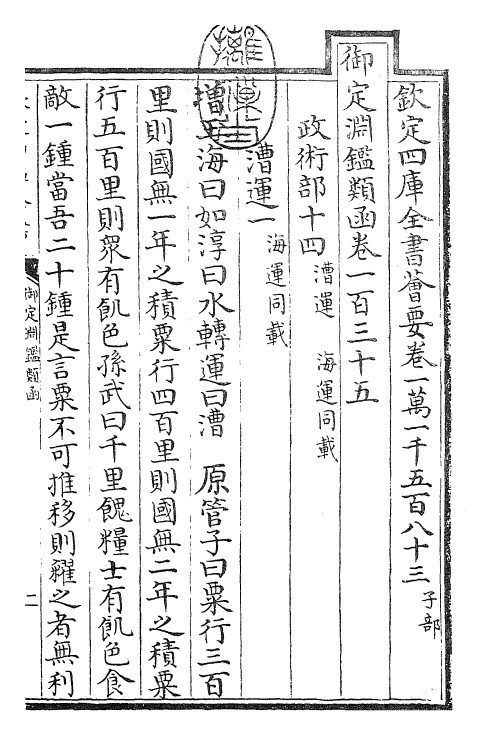 欽定四庫全書薈要卷一萬一千五百八十三 子部
御定淵鑑類函卷一百三十五
政術部十四 漕運 海運同載
漕運一 海運同載
增玉海曰如淳曰水轉運曰漕 原管子曰粟行三百
里則國無一年之積粟行四百里則國無二年之積粟
行五百里則眾有飢色孫武曰千里餽糧士有飢色食
敵一鍾當吾二十鍾是言粟不可推移則糴之者無利
御定淵鑑類函